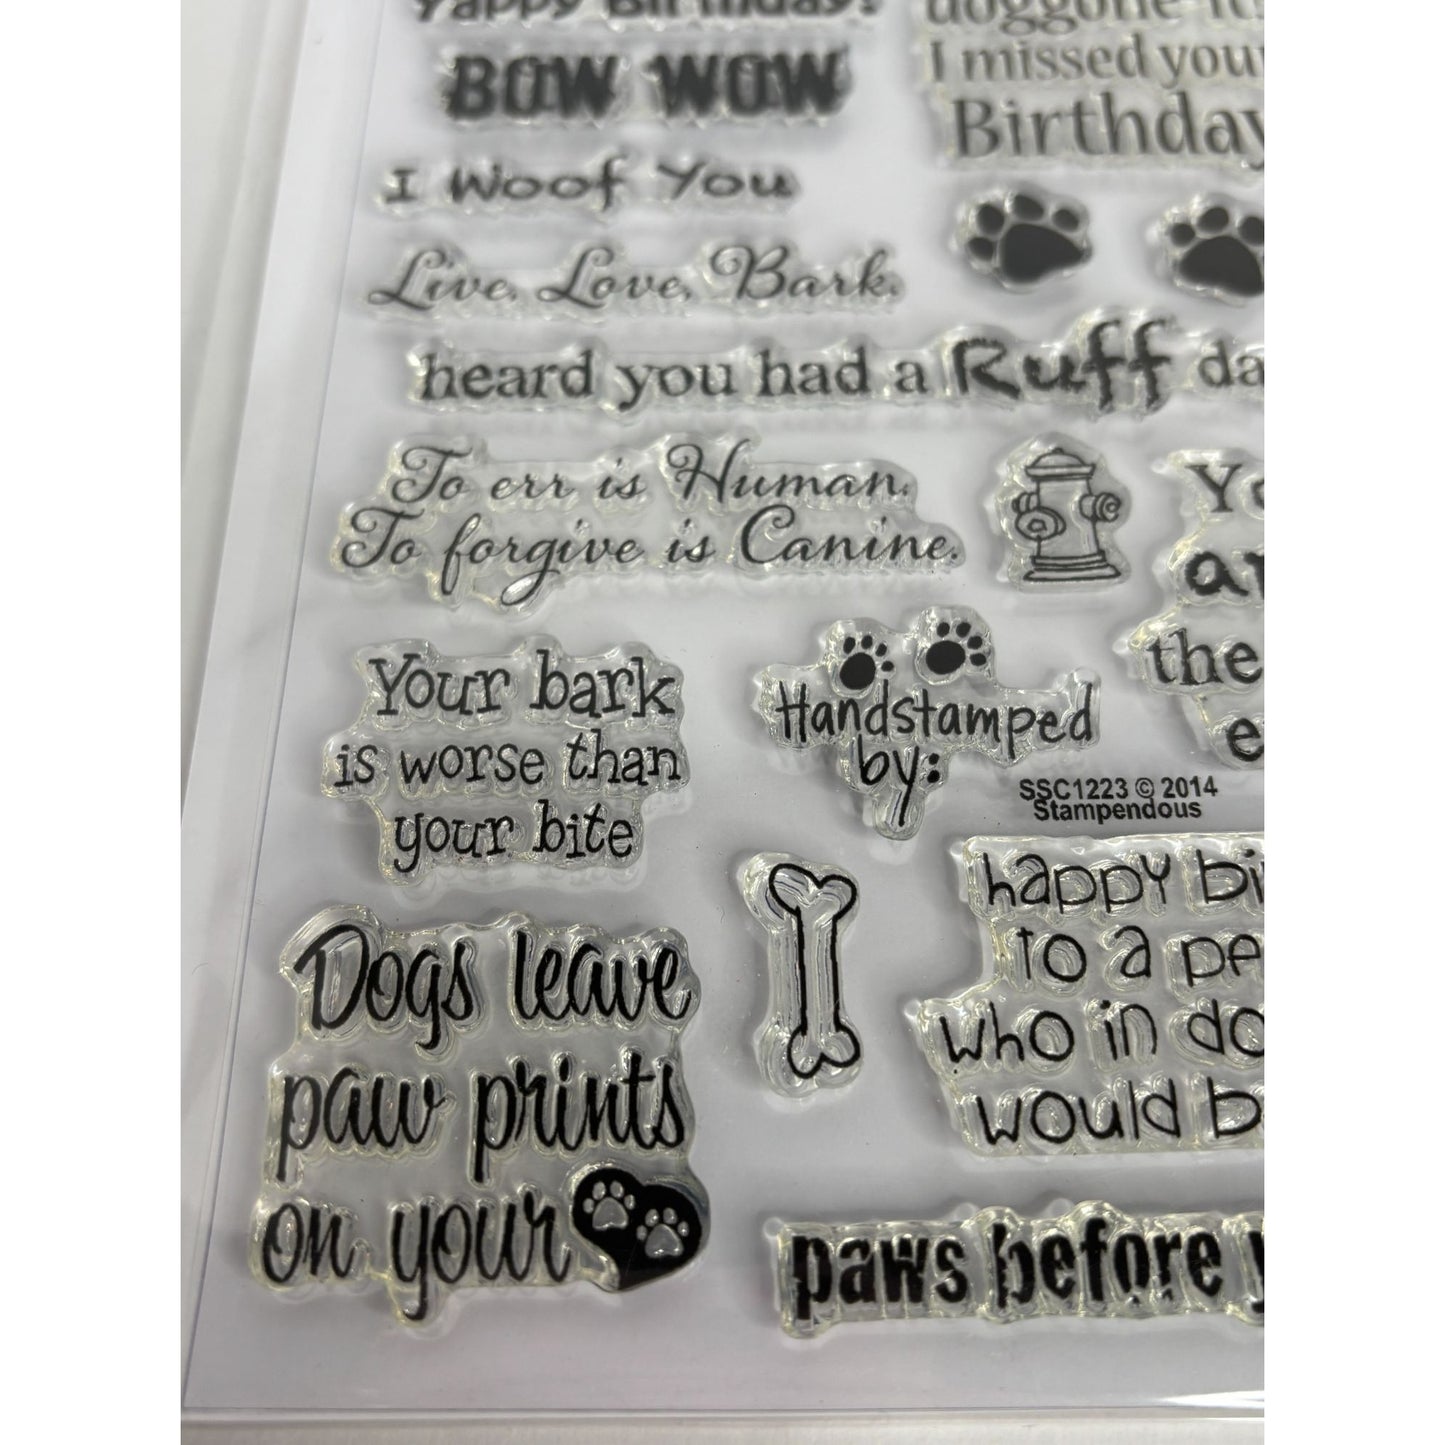 Yappy Birthday!
BOW WOW
I Woof You
Live, Love, Bark.
heard you had a Ruff da
To err is Human.
To forgive is Canine.
Your bark
is worse than
your bite
Dogs leave
paw prints
on your
doggone-it
I missed your
Birthday
Yo
an
the
e
Handstamped
by:
SSC1223 © 2014
Stampendous
happy bi
to a pe
who in do
would b
paws before y